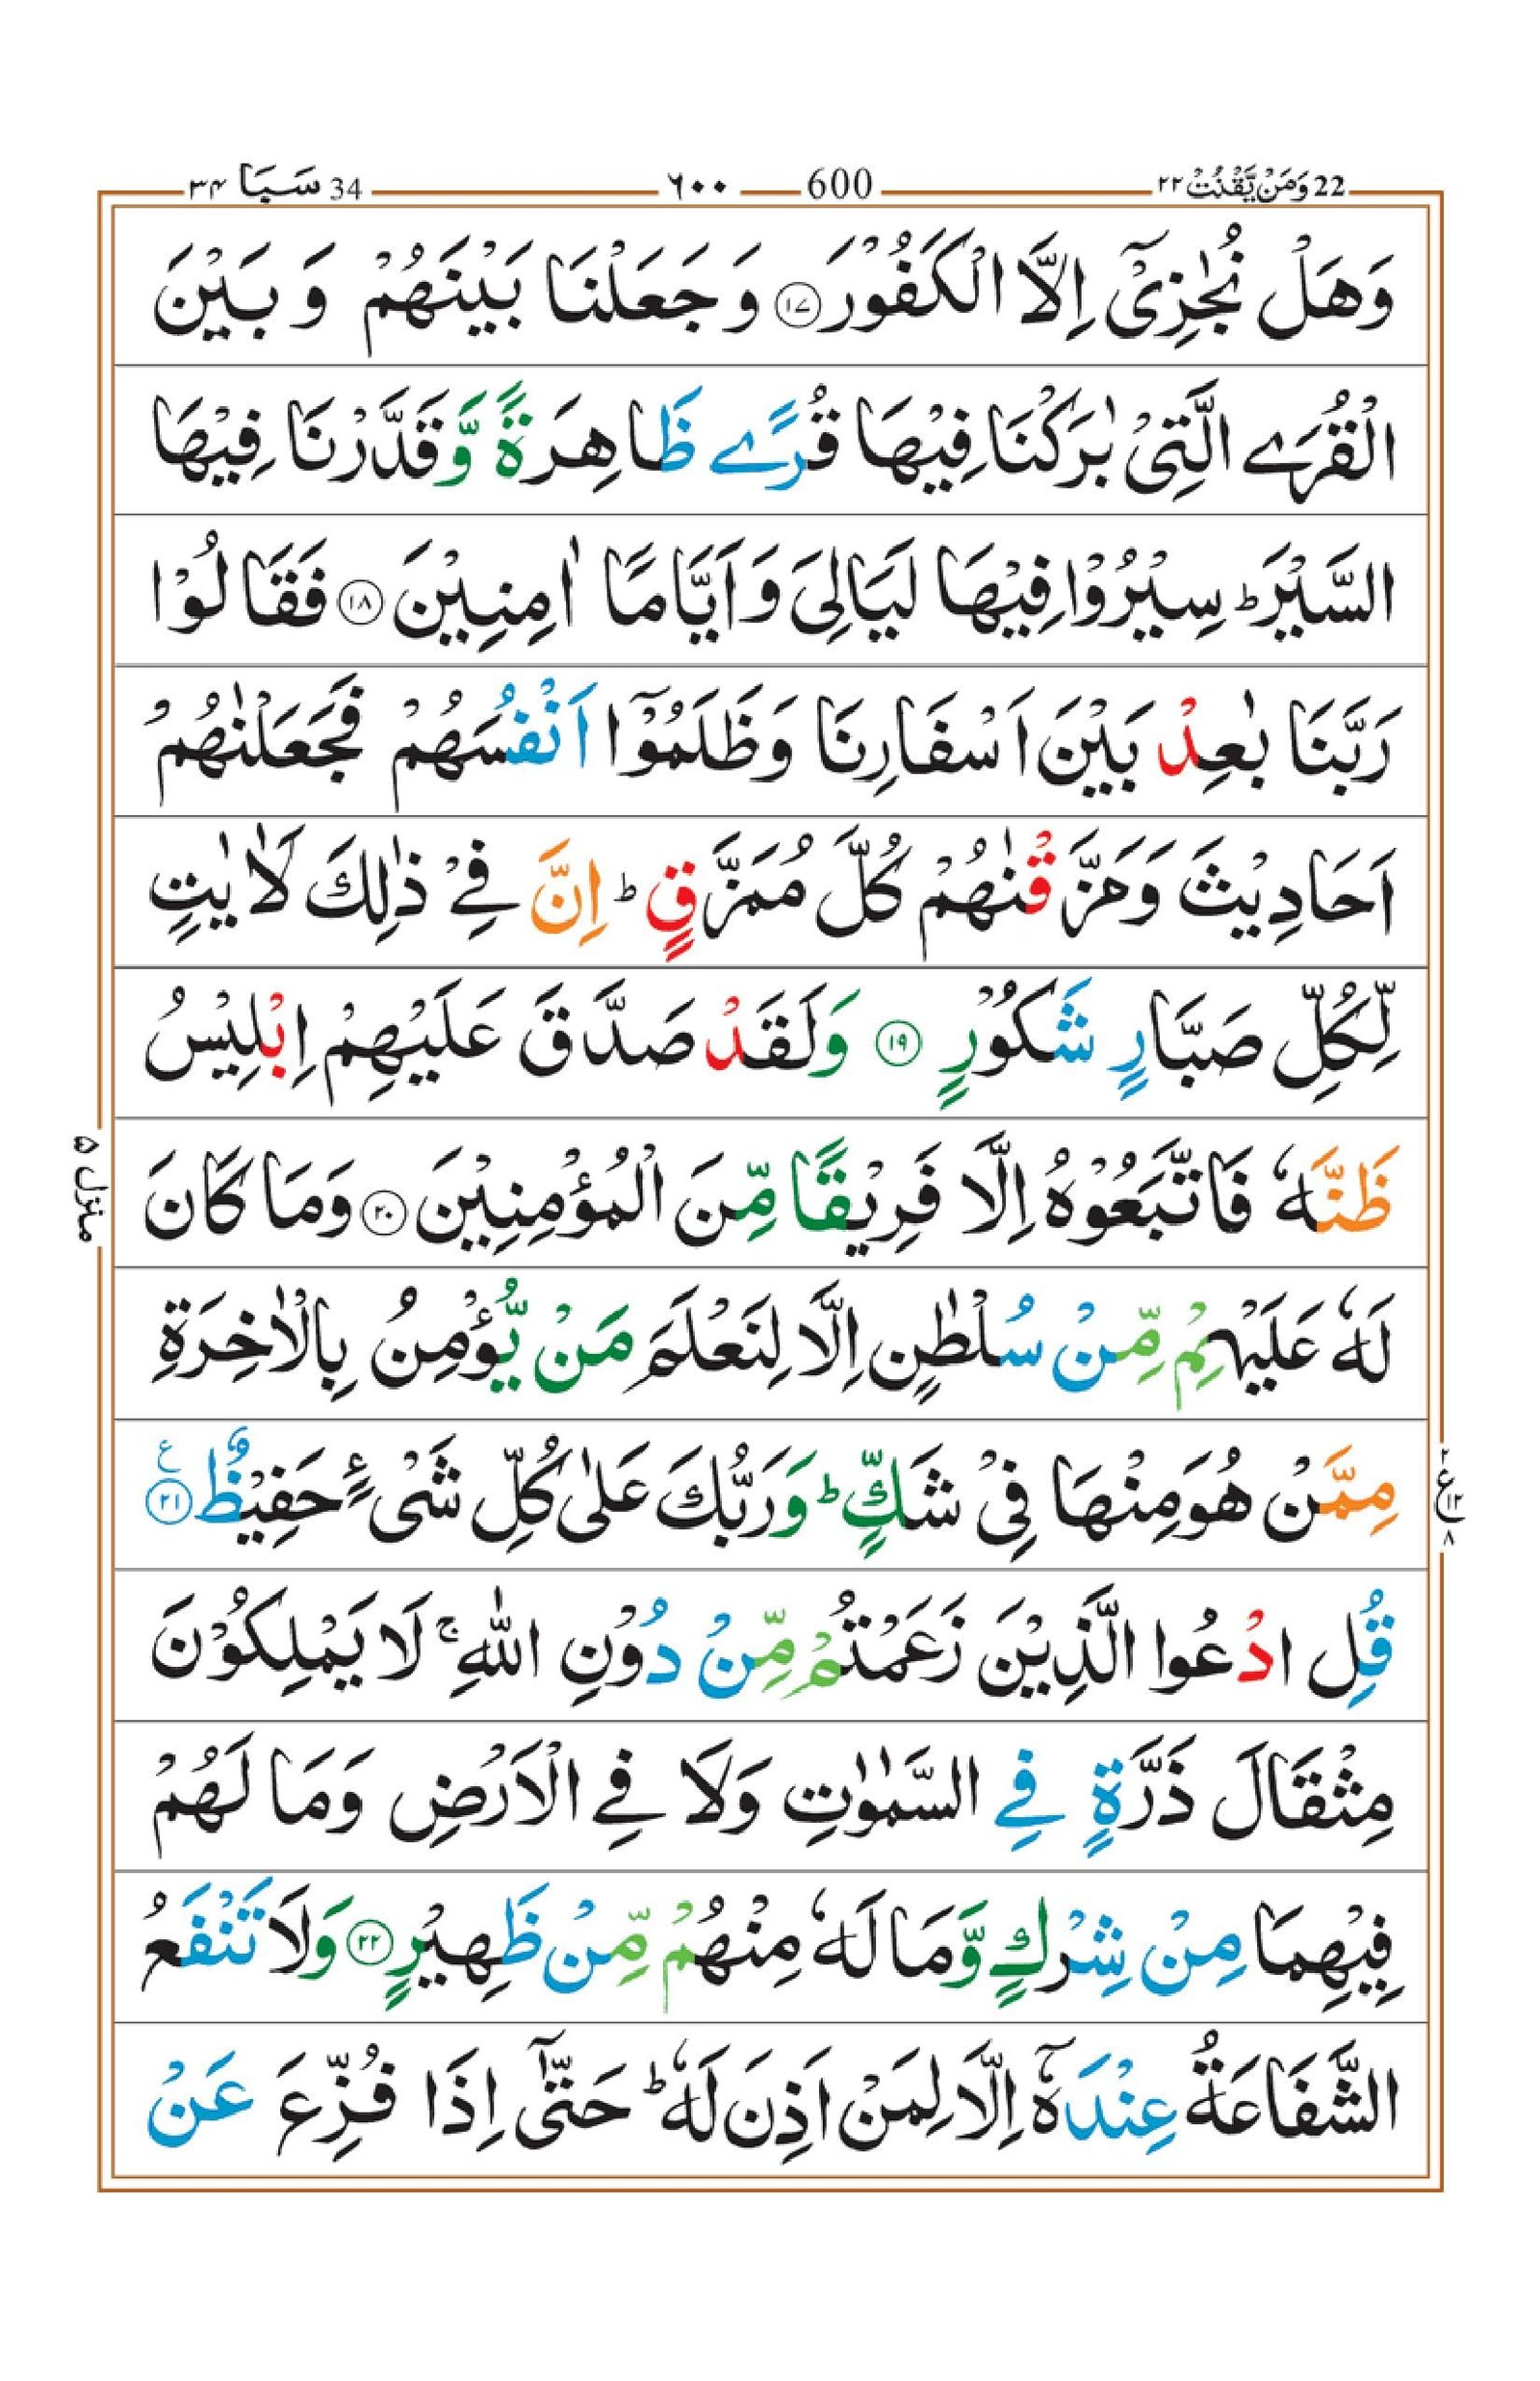 22 وَمَنْ يَّقْنُتْ ۲۲ 600 ۶۰۰ 34 سَبَا ۳۴
وَهَلْ نُجٰزِیْۤ اِلَّا الْكَفُوْرَ ﴿۱۷﴾ وَ جَعَلْنَا بَيْنَهُمْ وَ بَيْنَ
الْقُرَى الَّتِیْ بٰرَكْنَا فِيْهَا قُرًى ظَاهِرَةً وَّقَدَّرْنَا فِيْهَا
السَّيْرَ ؕ سِيْرُوْا فِيْهَا لَيَالِیَ وَاَيَّامًا اٰمِنِيْنَ ﴿۱۸﴾ فَقَالُوْا
رَبَّنَا بٰعِدْ بَيْنَ اَسْفَارِنَا وَظَلَمُوْۤا اَنْفُسَهُمْ فَجَعَلْنٰهُمْ
اَحَادِيْثَ وَمَزَّقْنٰهُمْ كُلَّ مُمَزَّقٍ ؕ اِنَّ فِیْ ذٰلِكَ لَاٰيٰتٍ
لِّكُلِّ صَبَّارٍ شَكُوْرٍ ﴿۱۹﴾ وَلَقَدْ صَدَّقَ عَلَيْهِمْ اِبْلِيْسُ
ظَنَّهٗ فَاتَّبَعُوْهُ اِلَّا فَرِيْقًا مِّنَ الْمُؤْمِنِيْنَ ﴿۲۰﴾ وَمَا كَانَ
لَهٗ عَلَيْهِمْ مِّنْ سُلْطٰنٍ اِلَّا لِنَعْلَمَ مَنْ يُّؤْمِنُ بِالْاٰخِرَةِ
مِمَّنْ هُوَ مِنْهَا فِیْ شَكٍّ ؕ وَرَبُّكَ عَلٰى كُلِّ شَیْءٍ حَفِيْظٌ ﴿۲۱﴾ ع
قُلِ ادْعُوا الَّذِيْنَ زَعَمْتُمْ مِّنْ دُوْنِ اللّٰهِ ۚ لَا يَمْلِكُوْنَ
مِثْقَالَ ذَرَّةٍ فِی السَّمٰوٰتِ وَلَا فِی الْاَرْضِ وَمَا لَهُمْ
فِيْهِمَا مِنْ شِرْكٍ وَّمَا لَهٗ مِنْهُمْ مِّنْ ظَهِيْرٍ ﴿۲۲﴾ وَلَا تَنْفَعُ
الشَّفَاعَةُ عِنْدَهٗۤ اِلَّا لِمَنْ اَذِنَ لَهٗ ؕ حَتّٰۤى اِذَا فُزِّعَ عَنْ
منزل ۵
۲ ع ۱۲ ۸